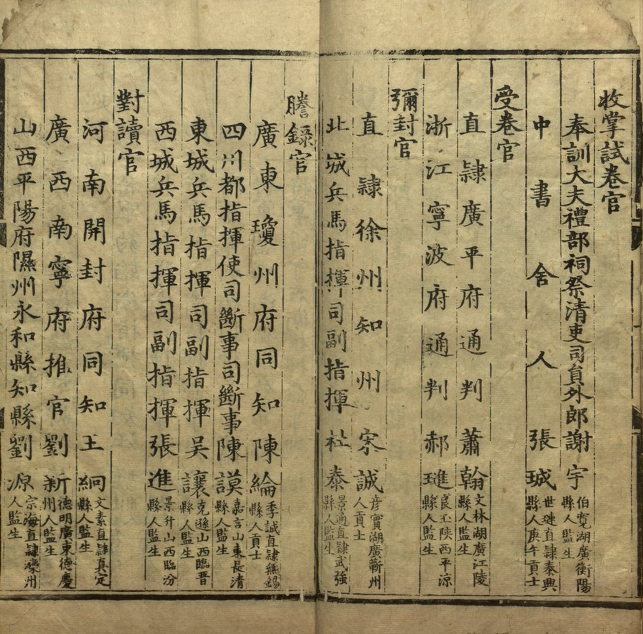 收掌試卷官
奉訓大夫禮部祠祭清吏司員外郎謝宇 伯寬湖廣衡陽縣人監生
中書舍人張珹 世璉直隸泰興縣人庚午貢士
受卷官
直隸廣平府通判蕭翰 文林湖廣江陵縣人監生
浙江寧波府通判郝璡 良玉陝西平涼縣人監生
彌封官
直隸徐州知州宋誠 彥實湖廣蘄州人貢士
北城兵馬指揮司副指揮杜泰 景通直隸武強縣人監生
謄錄官
廣東瓊州府同知陳綸 季誠直隸無錫縣人貢士
四川都指揮使司斷事司斷事陳謨 嘉言山東長清縣人監生
東城兵馬指揮司副指揮吳讓 克遜山西臨晉縣人監生
西城兵馬指揮司副指揮張進 景升山西臨汾縣人監生
對讀官
河南開封府同知王絅 文素直隸真定縣人監生
廣西南寧府推官劉新 德明廣東德慶州人監生
山西平陽府隰州永和縣知縣劉源 宗海直隸灤州人監生